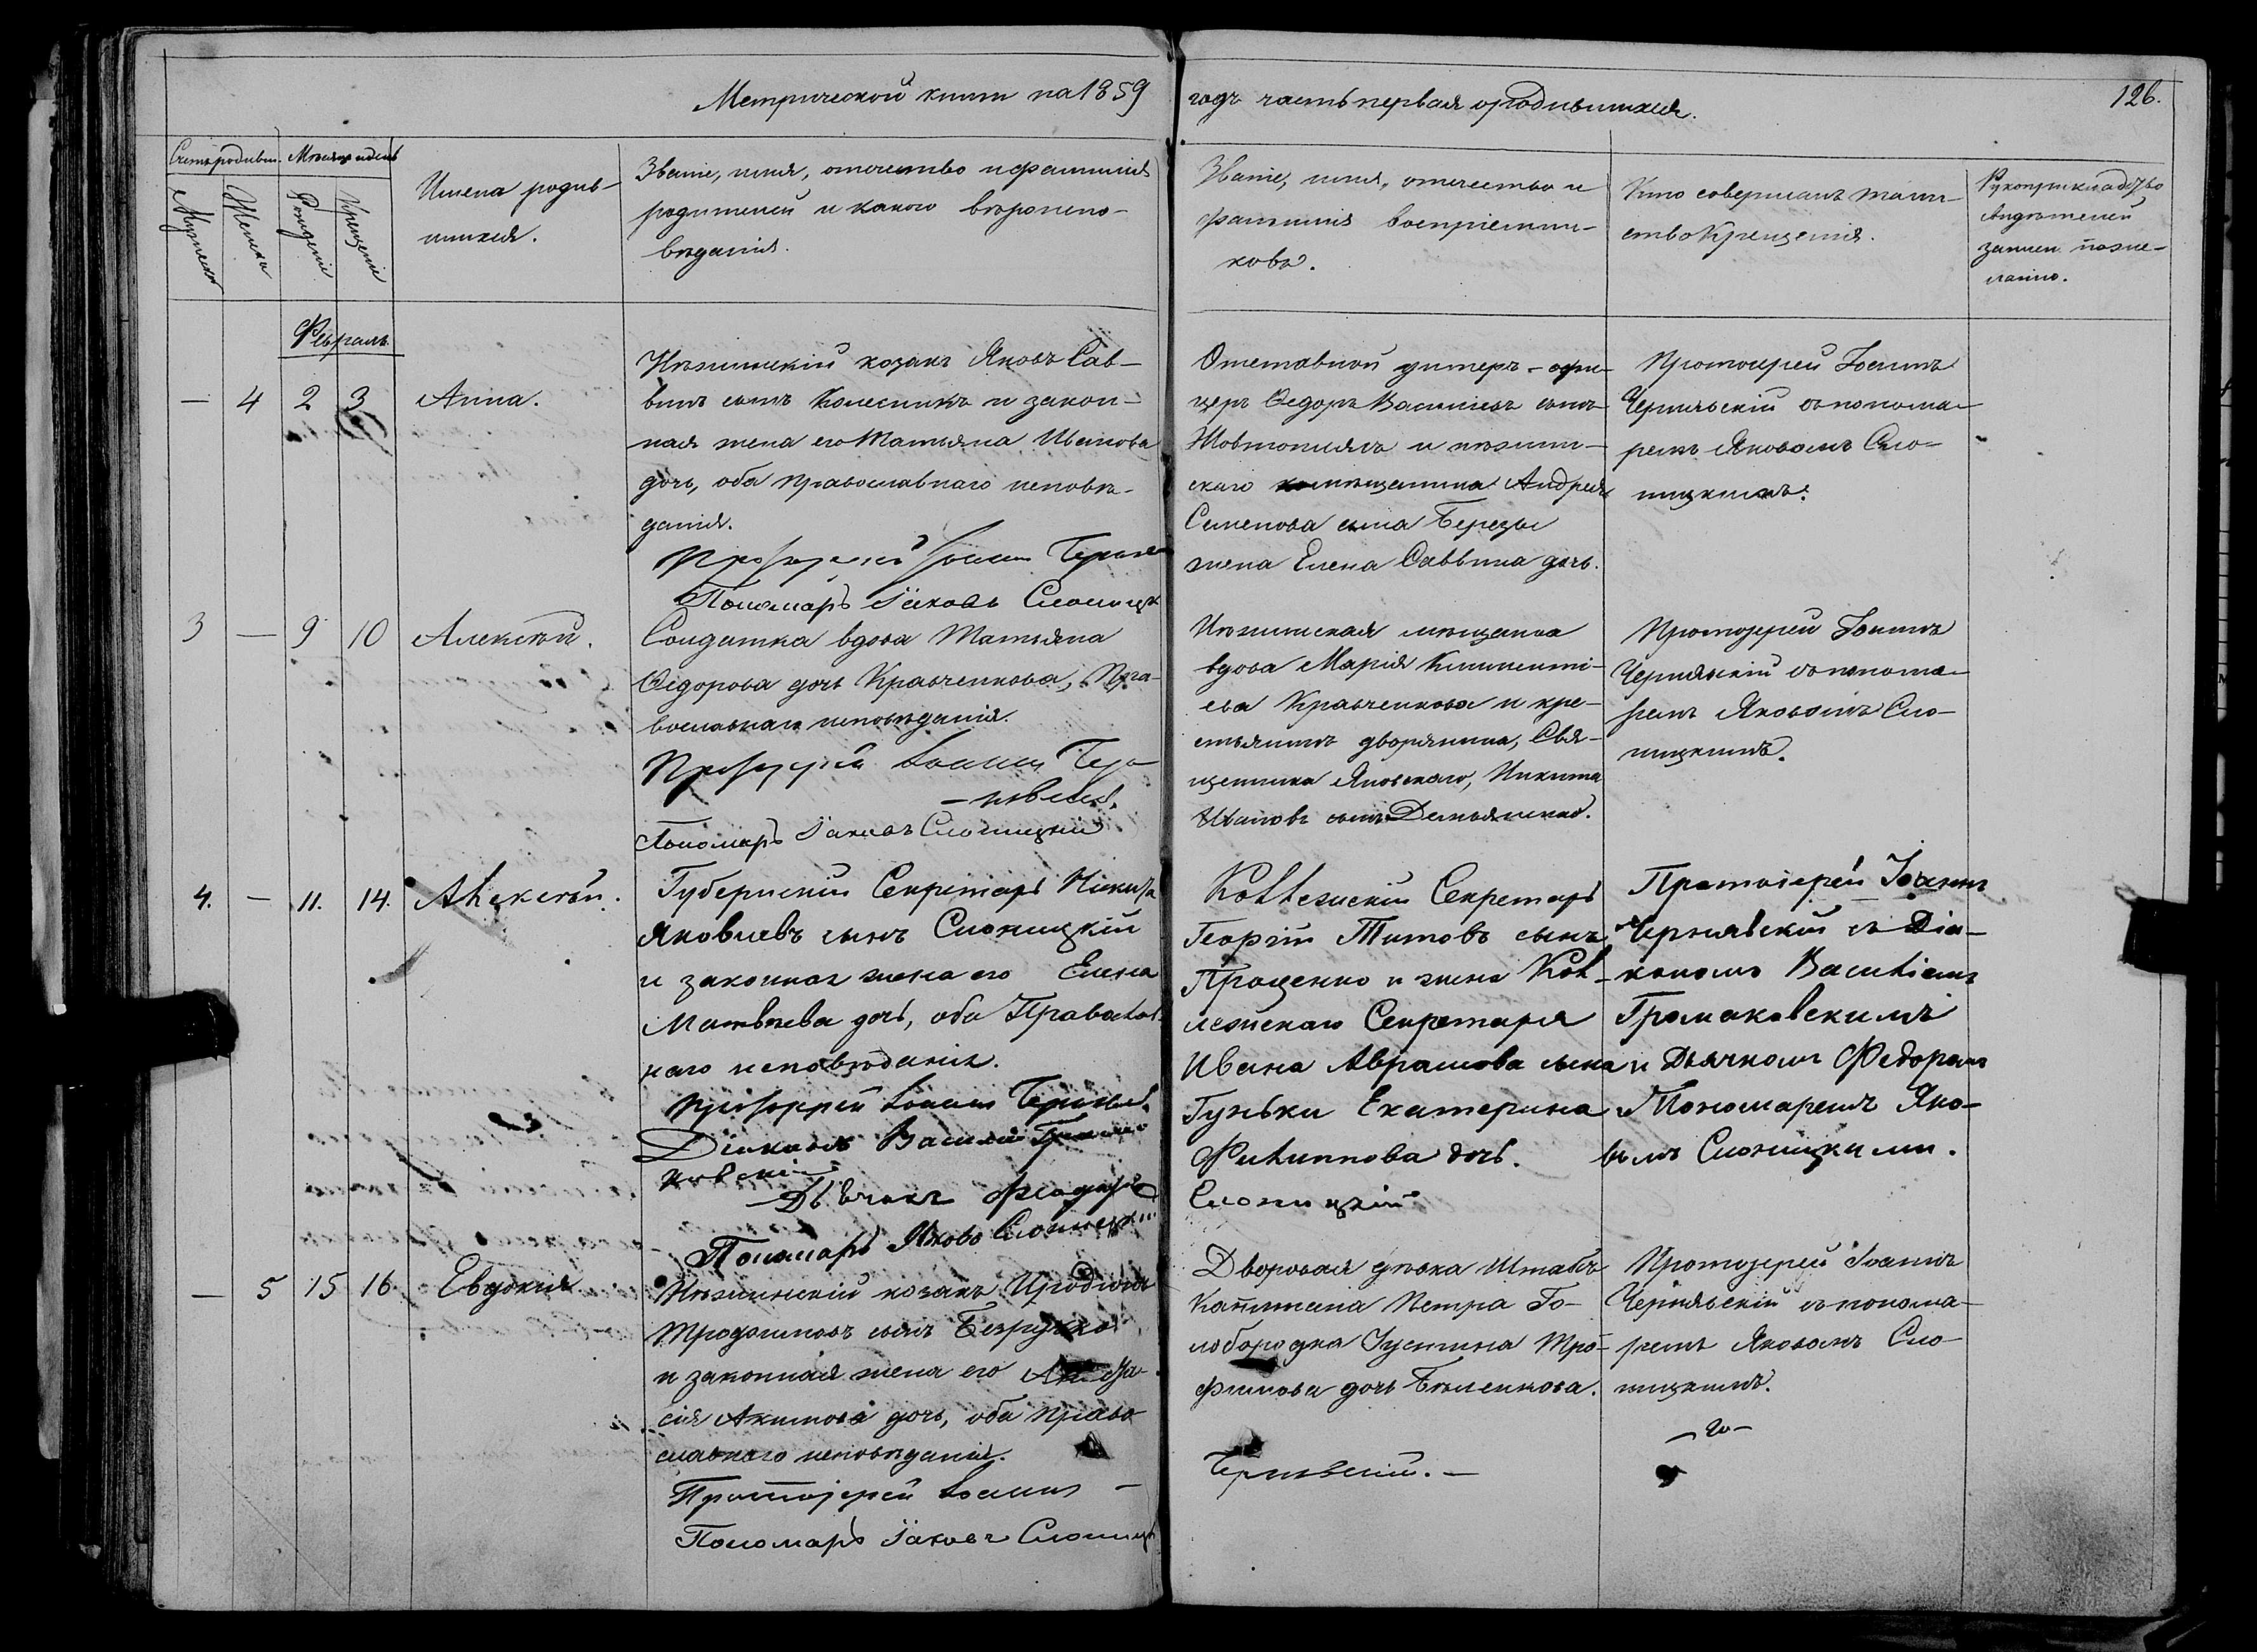 Метрической книги на 1859 годъ часть первая о родившихся.
126.
Счетъ родивш.
Мѣсяцъ и день
Мужеска
Женска
Рожденія
Крещенія
Имена родив-
шихся.
Званіе, имя, отчество и фамилія
родителей и какого вѣроиспо-
вѣданія.
Званіе, имя, отчество и
фамилія воспріемни-
ковъ.
Кто совершалъ таин-
ство Крещенія.
Рукоприкладство
свидѣтелей
записи по же-
ланію.
Февраль
— 4 2 3 Анна.
Нѣжинскій козакъ Яковъ Сав-
винъ сынъ Колесникъ и закон-
ная жена его Татьяна Иванова
дочь, оба православнаго исповѣ-
данія.
Протоіерей Іоаннъ
Пономаръ Іаковъ Слониц
Отставной унтеръ-офи-
церъ Ѳедоръ Васильевъ сынъ
и нѣжин-
скаго мѣщанина Андрея
Семенова сына Березы
жена Елена Саввина дочь.
Протоіерей Іоаннъ
Чернявскій съ понома-
ремъ Яковомъ Сло-
ницкимъ.
3 — 9 10 Алексѣй.
Солдатка вдова Татьяна
Ѳедорова дочь Кравченкова, Пра-
вославнаго исповѣданія.
Протоіерей Іоаннъ Чер-
-нявскій.
Пономаръ Іаковъ Слоницкій
Нѣжинская мѣщанка
вдова Марія Климентi-
ева Кравченкова и кре-
стьянинъ дворянина, Свя-
щенника Яновскаго, Никита
Ивановъ сынъ
Протоіерей Іоаннъ
Чернявскій съ понома-
ремъ Яковомъ Сло-
ницкимъ.
4. — 11. 14. Алексѣй.
Губернскій Секретарь Никита
Яковлевъ сынъ Слоницкій
и законная жена его Елена
Матвѣева дочь, оба Православ-
наго исповѣданія.
Протоіерей Іоаннъ
Діаконъ Василій Грома-
ковскій
Дьячокъ Федоръ
Слоницкій
Пономаръ Яковъ Слоницкій
Коллежскій Секретарь
Георгій Титовъ сынъ
Проценко и жена Кол-
лежскаго Секретаря
Ивана Аврамова сына
Гуньки Екатерина
Филиппова дочь.
Протоіерей Іоаннъ
Чернявскій съ Діа-
кономъ Василіемъ
Громаковскимъ
и Дьячкомъ Федоромъ
Пономаремъ Яко-
вымъ Слоницкими.
— 5 15 16 Евдокія
Нѣжинскій козакъ Иродіонъ
Трофимовъ сынъ Безручко
и законная жена его
Акимова дочь, оба право-
славнаго исповѣданія.
Протоіерей Іоаннъ —
Чернявскій. —
Пономаръ Іаковъ Слониц
Дворовая дѣвка Штабсъ
Капитана Петра Го-
лобородка Іустина Тро-
фимова дочь Бѣленкова.
Протоіерей Іоаннъ
Чернявскій съ понома-
ремъ Яковомъ Сло-
ницкимъ.